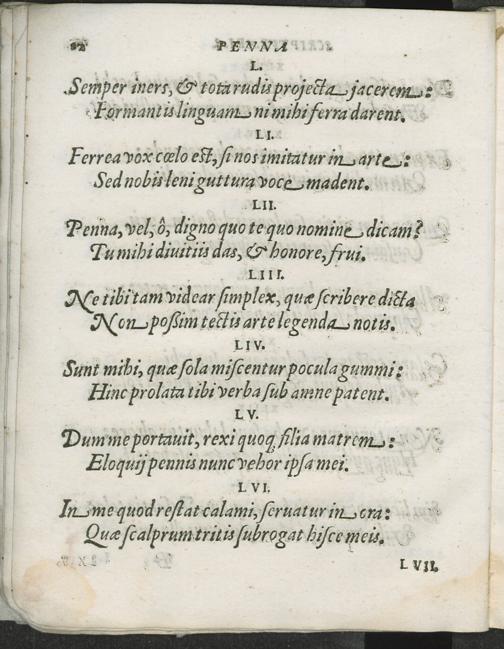 82 PENNA
L.
Semper iners, & tota rudis projecta jacerem:
Formantis linguam ni mihi ferra darent.
LI.
Ferrea vox cœlo est, si nos imitatur in arte:
Sed nobis leni guttura voce madent.
LII.
Penna, vel, ô, digno quo te quo nomine dicam?
Tu mihi divitiis das, & honore, frui.
LIII.
Ne tibi tam videar simplex, quæ scribere dicta
Non possim tectis arte legenda notis.
LIV.
Sunt mihi, quæ sola miscentur pocula gummi:
Hinc prolata tibi verba sub amne patent.
LV.
Dum me portauit, rexi quoq; filia matrem:
Eloquij pennis nunc vehor ipsa mei.
LVI.
In me quod restat calami, seruatur in
Quæ scalprum tritis subrogat hisce meis.
LVII.